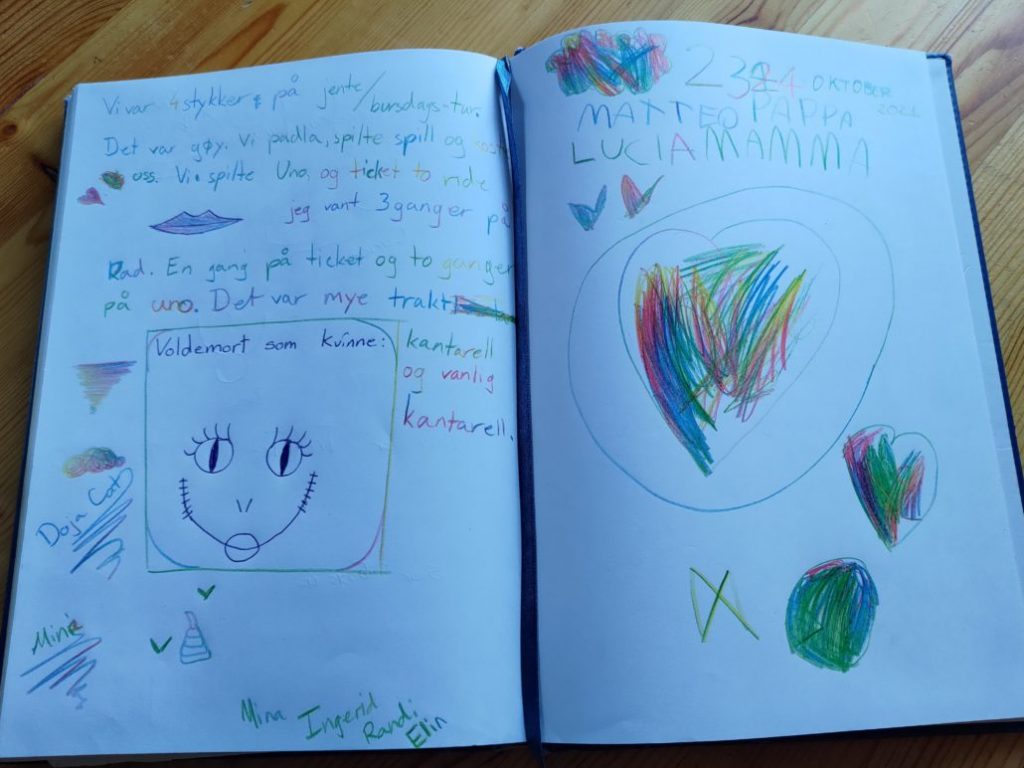 Vi var 4 stykker på jente/bursdags-tur.
Det var gøy. Vi padla, spilte spill og
oss. Vi spilte Uno, og ticket to ride
jeg vant 3 ganger på
Rad. En gang på ticket og to ganger
på uno. Det var mye trakt
kantarell
og vanlig
kantarell.
Voldemort som kvinne:
Doja Cat
Mina
Mina Ingerid
Randi
Elin
OKTOBER
MATTEO PAPPA
LUCIA MAMMA